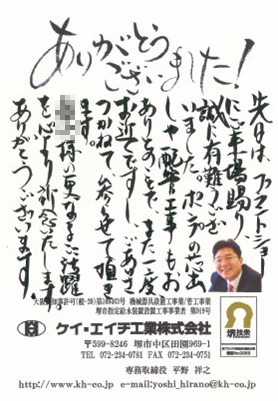 ありがとう
ございました！
先日は、ファーストショー
にご来場賜り
誠に有難うござ
いました。ポンプの芯出
しや配管工事もお
ありとのことで、また一度
お近てですし、ごあいさ
つかねて参らせて頂き
ます。
様の更なるご活躍
を心よりお祈念いたします。
ありがとうございます。
機械器具設置工事業/管工事業
堺市指定給水装置設置工事事業者 第319号
ケイ・エイチ工業株式会社
〒599-8246 堺市中区田園969-1
TEL 072-234-0781 FAX 072-234-0751
専務取締役 平野 祥之
http://www.kh-co.jp e-mail:yoshi_hirano@kh-co.jp